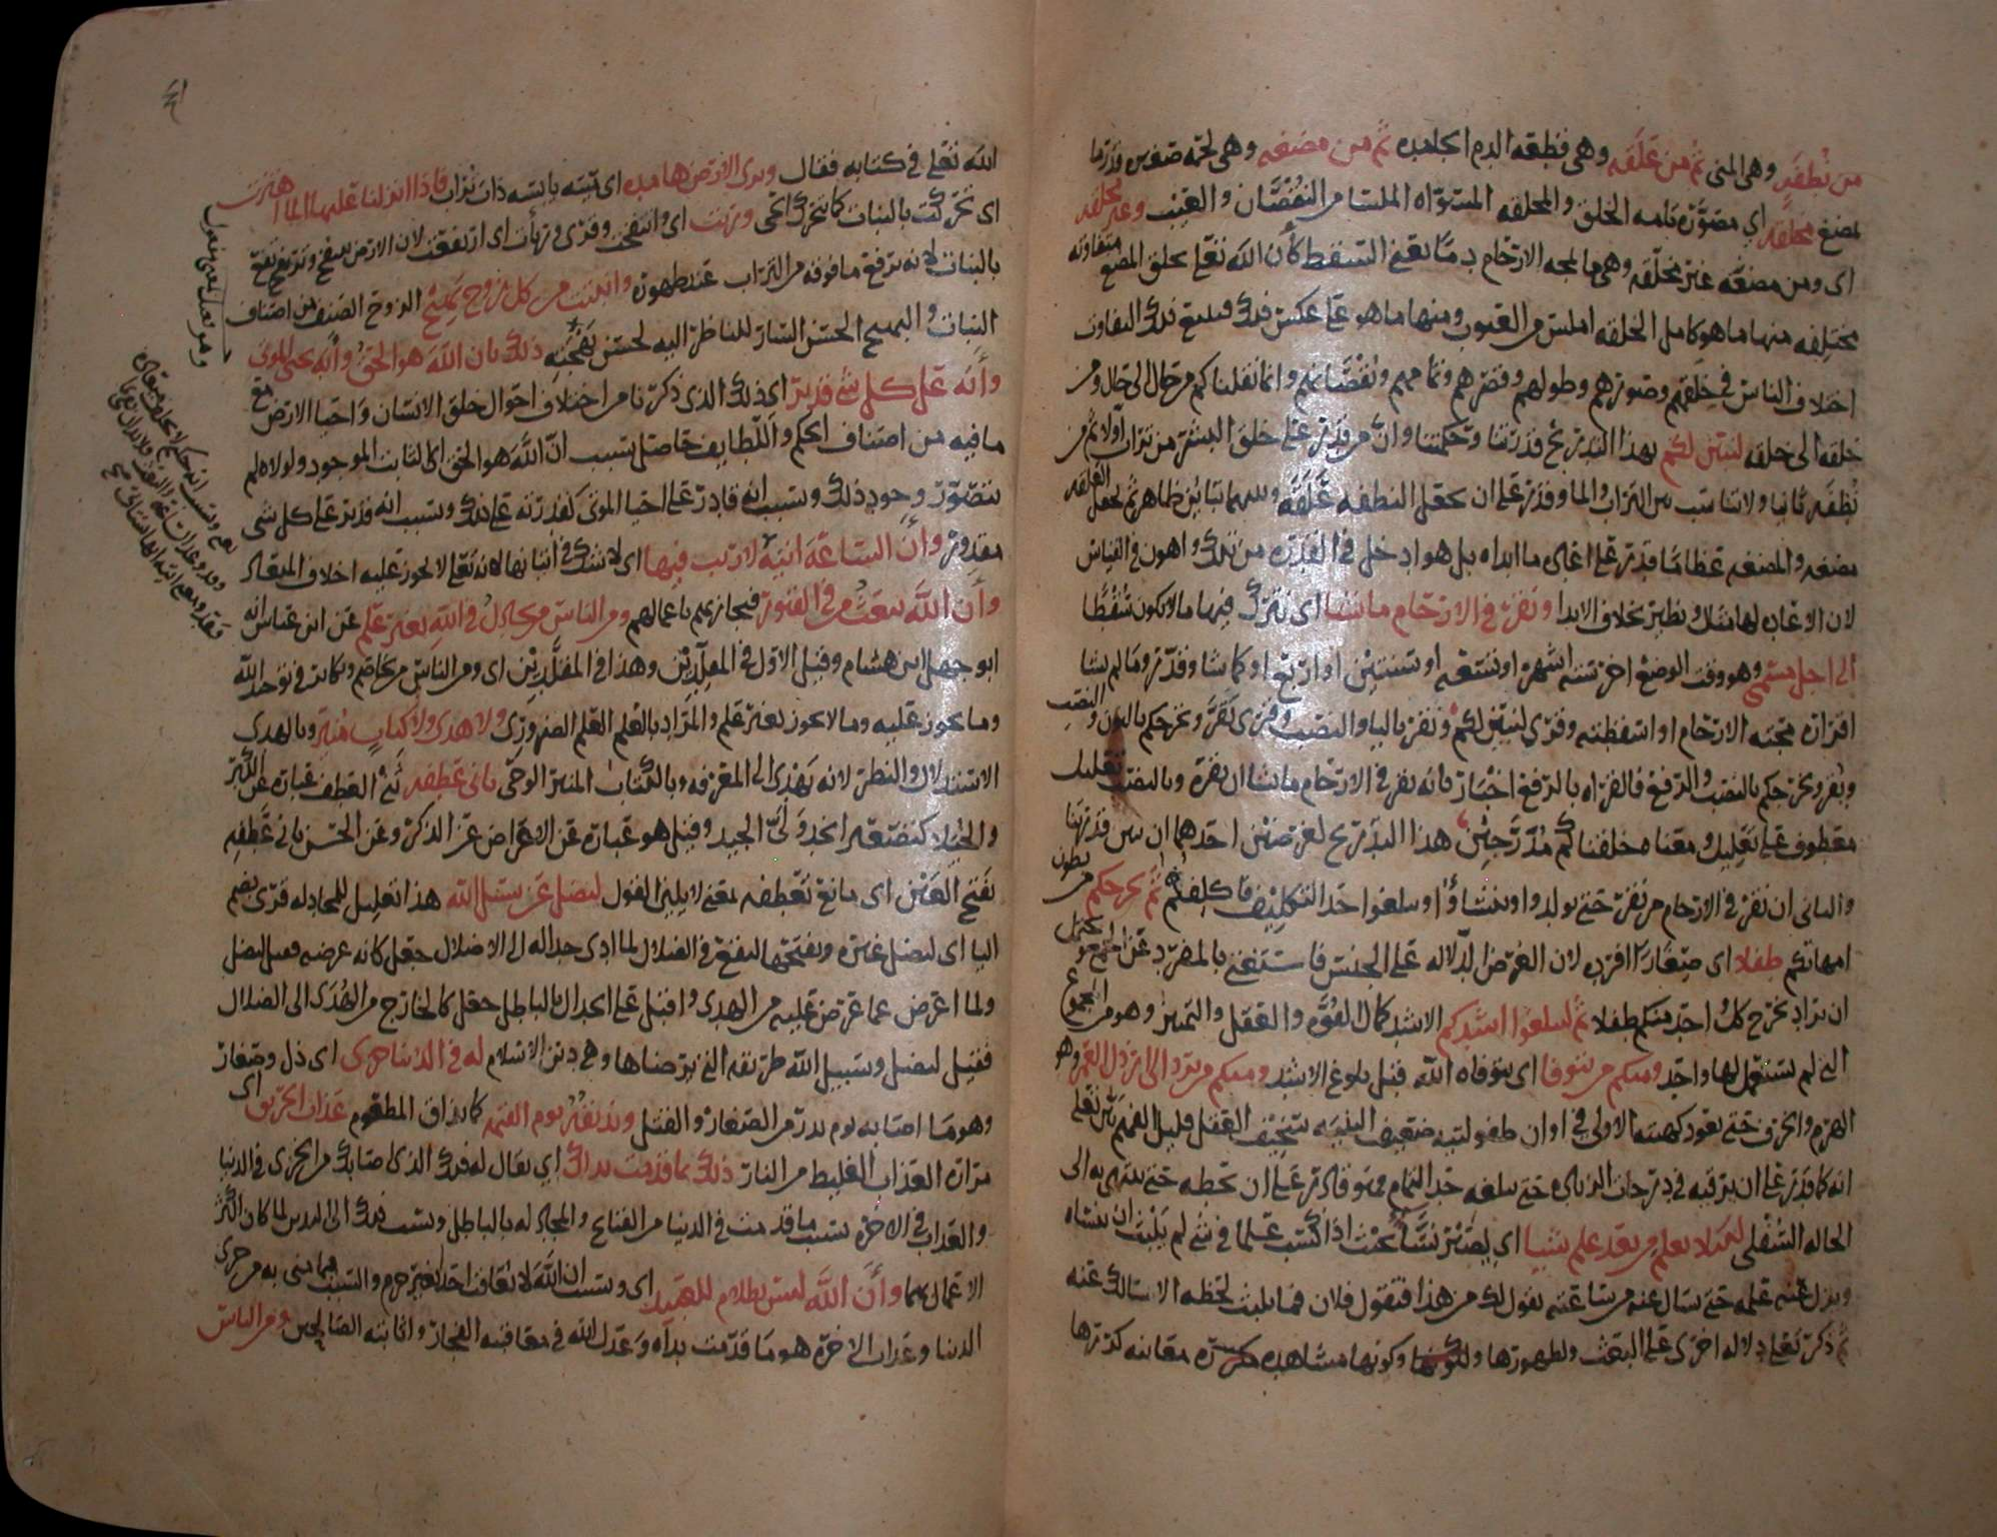 من نطفة وهي المني ثم من علقة وهي قطعه الدم الجامده ثم من مضغه وهي لحمه صغيره قدر ما
يمضغ مخلقة اي مصوره تامه الخلق والمخلقه المستواه الملسا من النقصان والعيب وغير مخلقه
اى ومن مضغه غير مخلقه وهي ما تمجه الارحام دما يعني السقط كأن الله تعلى يخلق المضغ متفاوته
مختلفه منها ما هو كامل الخلقه املس من العيوب ومنها ما هو على عكس ذلك فيتبع ذلك التفاوت
اختلاف الناس في خلقهم وصورهم وطولهم وقصرهم وتمامهم ونقصانهم وانما نقلناكم من حال الى حال ومن
خلقه الى خلقه لنبين لكم بهذا التدريج قدرتنا وحكمتنا وان من قدر على خلق البشر من تراب اولا ثم من
نطفه ثانيا ولا تناسب بين التراب والما وقدر على ان يجعل النطفه علقه وبينهما تباين ظاهر ثم يجعل العلقه
مضغه والمضغه عظاما قدر على اعادة ما ابداه بل هو ادخل في القدره من ذلك واهون في القياس
لان الاعاده لها مثل ونظير بخلاف الابدا ونقر في الارحام ما نشا اى نترك فيها ما لا يكون سقطا
الى اجل مسمى وهو وقت الوضع اخر ستة اشهر او تسعه او سنتين او اربع او كما شا وقدر وما لم يشا
اقراره محته الارحام او اسقطته وقرى ليبين لكم ونقر باليا والنصب وقرى نقر ونخرجكم بالنون والنصب
ونقر ونخرجكم بالنصب والرفع فالقراه بالرفع اخبار بانه يقر في الارحام ما يشا ان يقره وبالنصب تعليل
معطوف على تعليل ومعناه خلقناكم مدرجين هذا التدريج لغرضين احدهما ان نبين قدرتنا
والثاني ان نقر في الارحام من نقر حتى يولدوا وينشاوا ويبلغوا حد التكليف فاكلفهم ثم نخرجكم من بطون
امهاتكم طفلا اى صغارا افرده لان الغرض الدلاله على الجنس فاستغني بالمفرد عن الجمع ويحتمل
ان يراد نخرج كل احد منكم طفلا ثم لتبلغوا اشدكم الاشد كمال القوه والعقل والتميز وهو من الجموع
التي لم يستعمل لها واحد ومنكم من يتوفا اى يتوفاه الله قبل بلوغ الاشد ومنكم من يرد الى ارذل العمر وهو
الهرم والخرف حتى يعود كهيئته الاولى في اوان طفوليته ضعيف البنيه سخيف العقل قليل الفهم بين تعلى
انه كما قدر على ان يرقيه في درجات الزياده حتى يبلغه حد التمام فهو قادر على ان يحطه حتى ينتهي به الى
الحاله السفلى لكيلا يعلم من بعد علم شيا اى يصير نسا بحيث اذا كسب علما في شي لم يلبث ان ينساه
ويزل عنه علمه حتى يسال عنه من ساعته يقول لك من هذا فتقول فلان فما يلبث لحظه الا سالك عنه
ثم ذكر تعلى دلاله اخرى على البعث ولظهورها وكونها مشاهده معاينه كررها
الله تعلى في كتابه فقال وترى الارض هامده اى ميته يابسه ذات تراب فاذا انزلنا عليها الما اهتزت
اى تحركت بالنبات كما يتحرك الحي وربت اى وانتفخت وقرى وربأت اى ارتفعت لان الارض تنتفخ وترتفع
بالنبات لانه يرفع ما فوقه من التراب عند ظهوره وانبتت من كل زوج بهيج الزوج الصنف من اصناف
النبات والبهيج الحسن السار للناظر اليه لحسن بهجته ذلك بان الله هو الحق وانه يحي الموتى
وأنه على كل شي قدير اى ذلك الذى ذكرنا من اختلاف احوال خلق الانسان واحيا الارض مع
ما فيه من اصناف الحكم واللطايف حاصل بسبب ان الله هو الحق اى الثابت الموجود ولولاه لم
يتصور وجود ذلك وبسبب انه قادر على احيا الموتى كقدرته على ذلك وبسبب انه قدير على كل شي
مقدور وأن الساعة اتية لا ريب فيها اى لا شك في اتيانها لانه تعلى لا يجوز عليه اخلاف الميعاد
وأن الله يبعث من في القبور فيجازيهم باعمالهم ومن الناس من يجادل في الله بغير علم عن ابن عباس انه
ابو جهل ابن هشام وقيل الاول في المقلدين وهذا في المقلدين اى ومن الناس من يخاصم ويكابر في توحيد الله
وما يجوز عليه وما لا يجوز بغير علم والمراد بالعلم العلم الضروري ولا هدى ولا كتاب منير وبالهدى
الاستدلال والنظر لانه يهدي الى المعرفه وبالكتاب المنير الوحي ثاني عطفه ثني العطف عباره عن الكبر
والخيلا كتصعير الخد ولي الجيد وقيل هو عباره عن الاعراض عن الذكر وعن الحسن ثاني عطفه
بفتح العين اى مانع تعطفه بمعنى لا يلين القول ليضل عن سبيل الله هذا تعليل للمجادله قرى بضم
اليا اى ليضل غيره وبفتحها ليقع في الضلال لما ادى جداله الى الاضلال جعل كانه غرضه فقيل ليضل
ولما اعرض عما عرض عليه من الهدى واقبل على الجدال بالباطل جعل كالخارج من الهدى الى الضلال
فقيل ليضل وسبيل الله طريقه التي يرضاها وهي دين الاسلام له في الدنيا خزى اى ذل وصغار
وهو ما اصابه يوم بدر من الصغار والقتل ونذيقه يوم القيمه كما يذاق المطعوم عذاب الحريق اى
مراره العذاب الغليظ من النار ذلك بما قدمت يداك اى يقال له ذلك الذى اصابك من الخزى في الدنيا
والعذاب في الاخره بسبب ما قدمت في الدنيا من القبايح والمجادله بالباطل ونسب ذلك الى اليدين لما كان اكثر
الاعمال بهما وأن الله ليس بظلام للعبيد اى وبسبب ان الله لا يعاقب احدا بغير جرم والسبب فيما مني به من خزى
الدنيا وعذاب الاخره هو ما قدمت يداه وعدل الله في معاقبته الفجار واثابته الصالحين ومن الناس